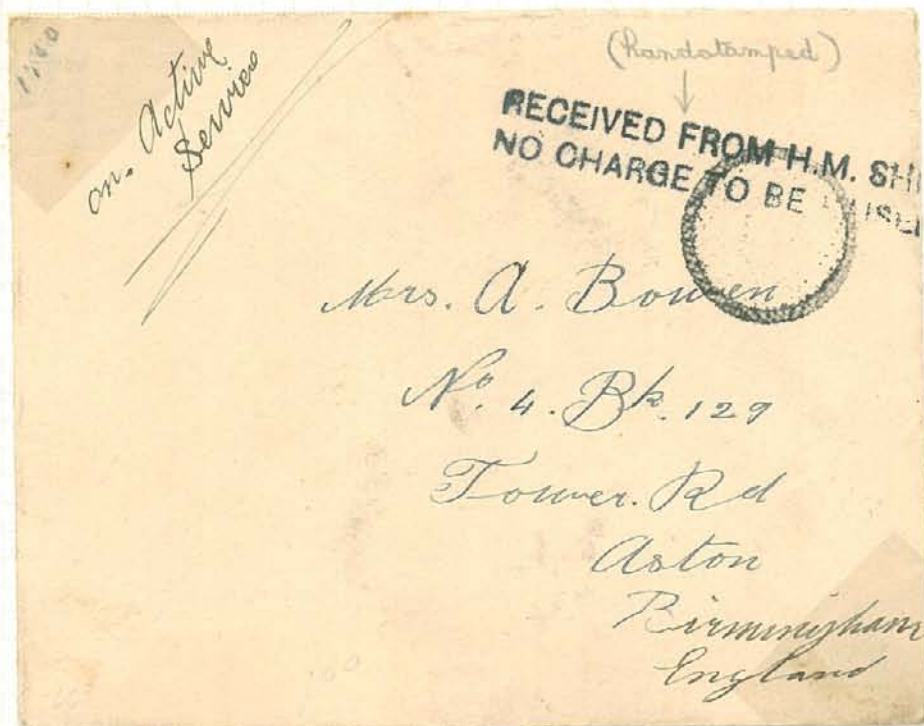 on. Active
Service
(handstamped)
RECEIVED FROM H.M. SHI
NO CHARGE TO BE
Mrs. A. Bowen
No. 4. Bk. 129
Tower. Rd
Aston
Birmingham
England